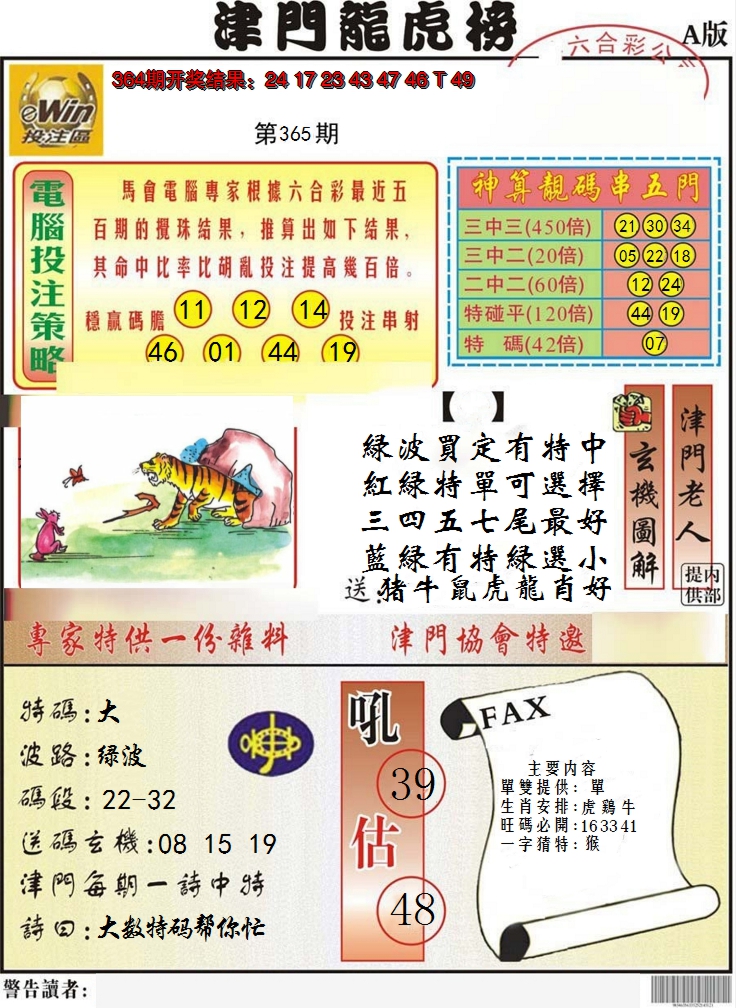 津門龍虎榜
六合彩公
A版
364期开奖结果：24 17 23 43 47 46 T 49
eWin
投注區
第365期
電腦投注策略
馬會電腦專家根據六合彩最近五
百期的攪珠结果，推算出如下结果，
其命中比率比胡亂投注提高幾百倍。
穩贏碼膽 11 12 14 投注串射
46 01 44 19
神算靚碼串五門
三中三(450倍) 21 30 34
三中二(20倍) 05 22 18
二中二(60倍) 12 24
特碰平(120倍) 44 19
特 碼(42倍) 07
【 】
綠波買定有特中
紅綠特單可選擇
三四五七尾最好
藍綠有特綠選小
送:猪牛鼠虎龍肖好
玄機圖解
津門老人
内部提供
專家特供一份雜料
津門協會特邀
特碼:大
波路:绿波
碼段:22-32
送碼玄機:08 15 19
津門每期一詩中特
詩曰:大数特码帮你忙
吼
39
估
48
FAX
主要内容
單雙提供：單
生肖安排:虎鷄牛
旺碼必開:163341
一字猜特:猴
警告讀者: